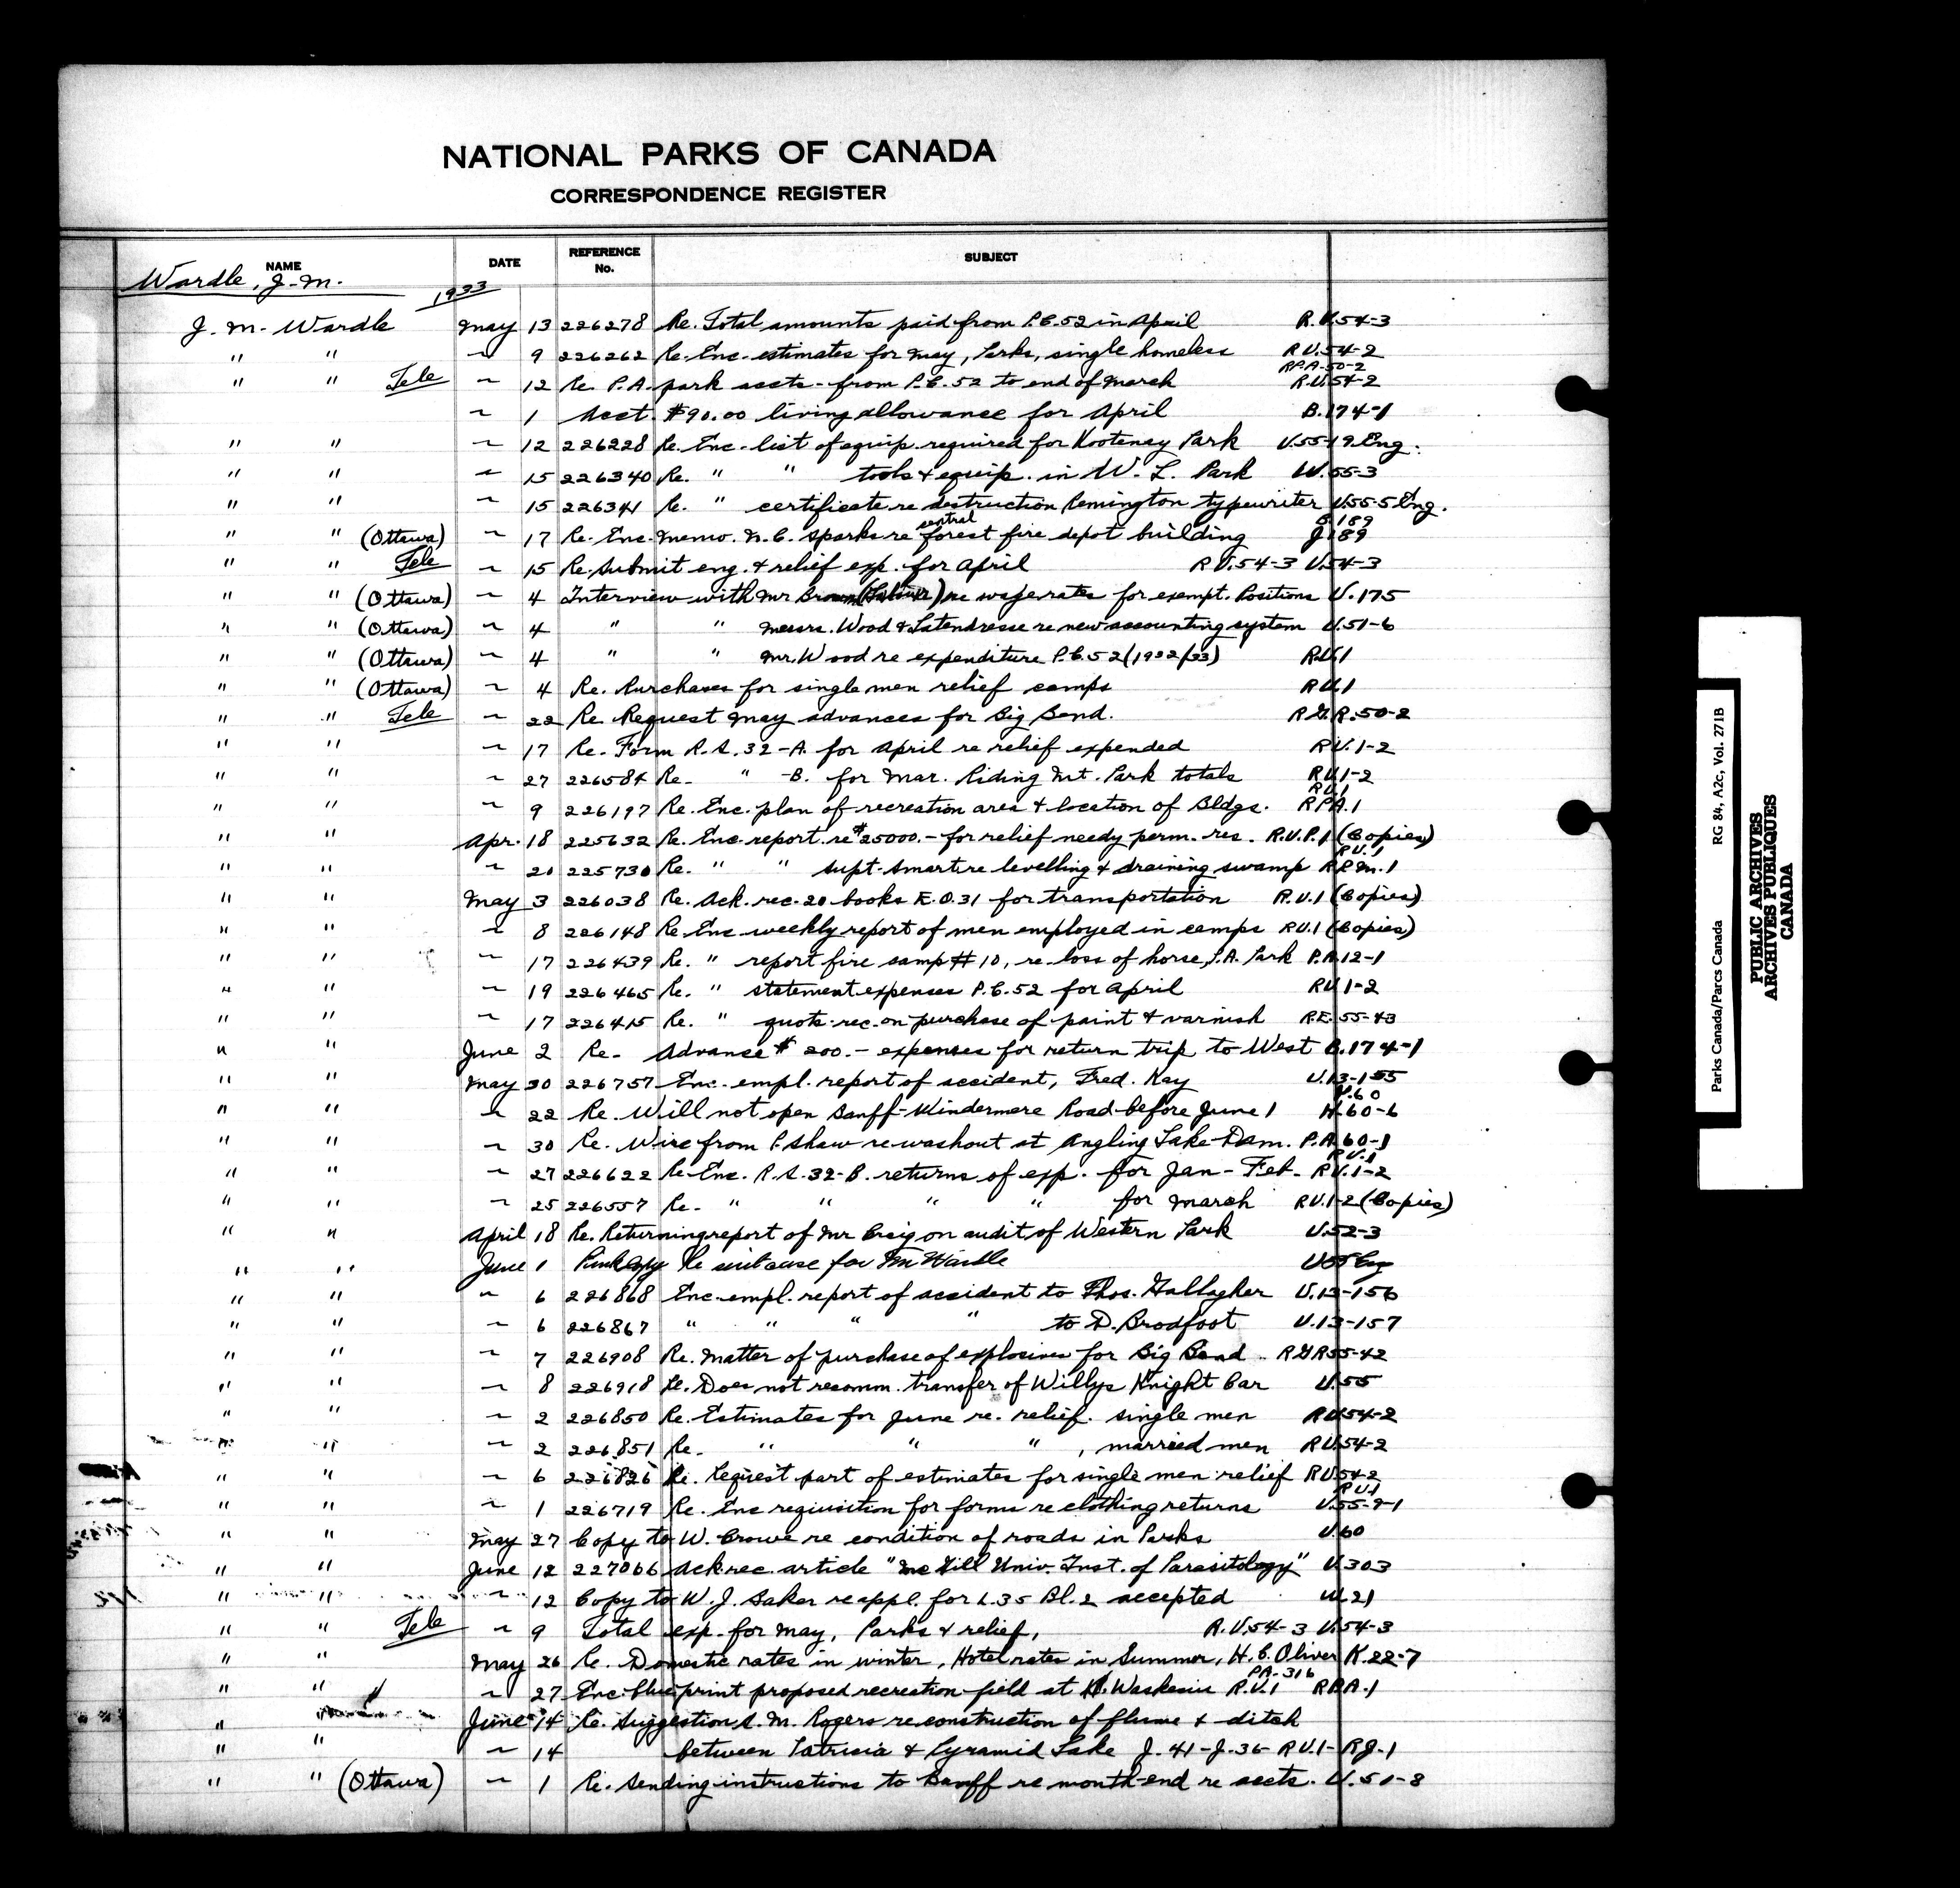 NATIONAL PARKS OF CANADA
CORRESPONDENCE REGISTER
NAME DATE REFERENCE No. SUBJECT
Wardle, J. M.
1933
J. M. Wardle May 13 226278 Re. Total amounts paid from P.C.52 in April R.U.54-3
" " ~ 9 226262 Re. Enc. estimates for May, Parks, single homeless R U.54-2
" " Tele ~ 12 Re P.A. park accts. from P.C.52 to end of March R.P.A.50-2 R.U.54-2
~ 1 Acct. $90.00 living allowance for April B.174-1
" " ~ 12 226228 Re. Enc. list of equip. required for Kootenay Park U.55-19 Eng.
" " ~ 15 226340 Re. " " tools & equip. in W. L. Park W.55-3
" " ~ 15 226341 Re. " certificate re destruction Remington typewriter U.55-5 Eng.
" " (Ottawa) ~ 17 Re. Enc. memo. N.C. Sparks re central forest fire depot building J 189
" " Tele ~ 15 Re. Submit eng. & relief exp. for April R U.54-3 U.54-3
" " (Ottawa) ~ 4 Interview with Mr Brown (Labour) re wage rates for exempt. Positions U.175
" " (Ottawa) ~ 4 " " Messrs. Wood & Latendresse re new accounting system U.51-6
" " (Ottawa) ~ 4 " " Mr. Wood re expenditure P.C.52 (1932/33) R.U.1
" " (Ottawa) ~ 4 Re. Purchases for single men relief camps R U.1
" " Tele ~ 22 Re. Request May advances for Big Bend. R G.R.50-2
" " ~ 17 Re. Form R.S.32-A. for April re relief expended R U.1-2
" " ~ 27 226584 Re. " -B. for Mar. Riding Mt. Park totals R U.1-2
" " ~ 9 226197 Re. Enc. plan of recreation area & location of Bldgs. R U.1 R P.A.1
" " Apr. 18 225632 Re. Enc. report re $25000.- for relief needy perm. res. R.U.P.1 (Copies)
" " ~ 20 225730 Re. " " Supt. Smart re levelling & draining swamp R U.1 R R M.1
" " May 3 226038 Re. Ack. rec. 20 books E.O.31 for transportation R.U.1 (Copies)
" " ~ 8 226148 Re Enc weekly report of men employed in camps R U.1 (Copies)
" " ~ 17 226439 Re. " report fire camp #10, re loss of horse, P.A. Park P.A.12-1
" " ~ 19 226465 Re. " statement expenses P.C.52 for April R U 1-2
" " ~ 17 226415 Re. " quote rec. on purchase of paint & varnish R.E.55-43
" " June 2 Re- Advance $200.- expenses for return trip to West B.174-1
" " May 30 226757 Enc. empl. report of accident, Fred. Kay U.13-155
" " ~ 22 Re. Will not open Banff-Windermere Road before June 1 U.60 K.60-6
" " ~ 30 Re. Wire from P. Shaw re washout at Angling Lake Dam. P.A.60-1
" " ~ 27 226622 Re. Enc. R.S.32-B. returns of exp. for Jan - Feb. R U.1 R U.1-2
" " ~ 25 226557 Re. " " " " for March R U.1-2 (Copies)
" " April 18 Re. Returning report of Mr Craig on audit of Western Park U.52-3
" " June 1 Pink copy Re suitcase for Mr Wardle U 55 Eng
" " ~ 6 226868 Enc. empl. report of accident to Thos. Gallagher U.13-156
" " ~ 6 226867 " " " " to D. Brodfoot U.13-157
" " ~ 7 226908 Re. Matter of purchase of explosives for Big Bend R G R 55-42
" " ~ 8 226918 Re. Does not recomm. transfer of Willys Knight Car U.55
" " ~ 2 226850 Re. Estimates for June re. relief. single men R U 54-2
" " ~ 2 226851 Re. " " " , married men R U.54-2
" " ~ 6 226826 Re. Request part of estimates for single men relief R U.54-2
" " ~ 1 226719 Re. Enc requisition for forms re clothing returns R U.1 U.55-9-1
" " May 27 Copy to W. Crowe re condition of roads in Parks U.60
" " June 12 227066 Ack. rec. article "McGill Univ. Inst. of Parasitology" U.303
" " ~ 12 Copy to W. J. Baker re appl. for L.35 Bl.2 accepted W.21
" " Tele ~ 9 Total exp. for May, Parks & relief, R.U.54-3 U.54-3
" " May 26 Re. Domestic rates in winter, Hotel rates in Summer, H.C. Oliver K.22-7
" " ~ 27 Enc. blueprint proposed recreation field at Waskesiu PA-316 R.U.1 R P A.1
" " June 14 Re. Suggestion S. M. Rogers re construction of flume & ditch
" " ~ 14 between Patricia & Pyramid Lake J.41-J.36- R U.1- R J-1
" " (Ottawa) ~ 1 Re. Sending instructions to Banff re month-end re accts. U.51-8
Parks Canada/Parcs Canada RG 84, A2c, Vol. 271B
PUBLIC ARCHIVES
ARCHIVES PUBLIQUES
CANADA